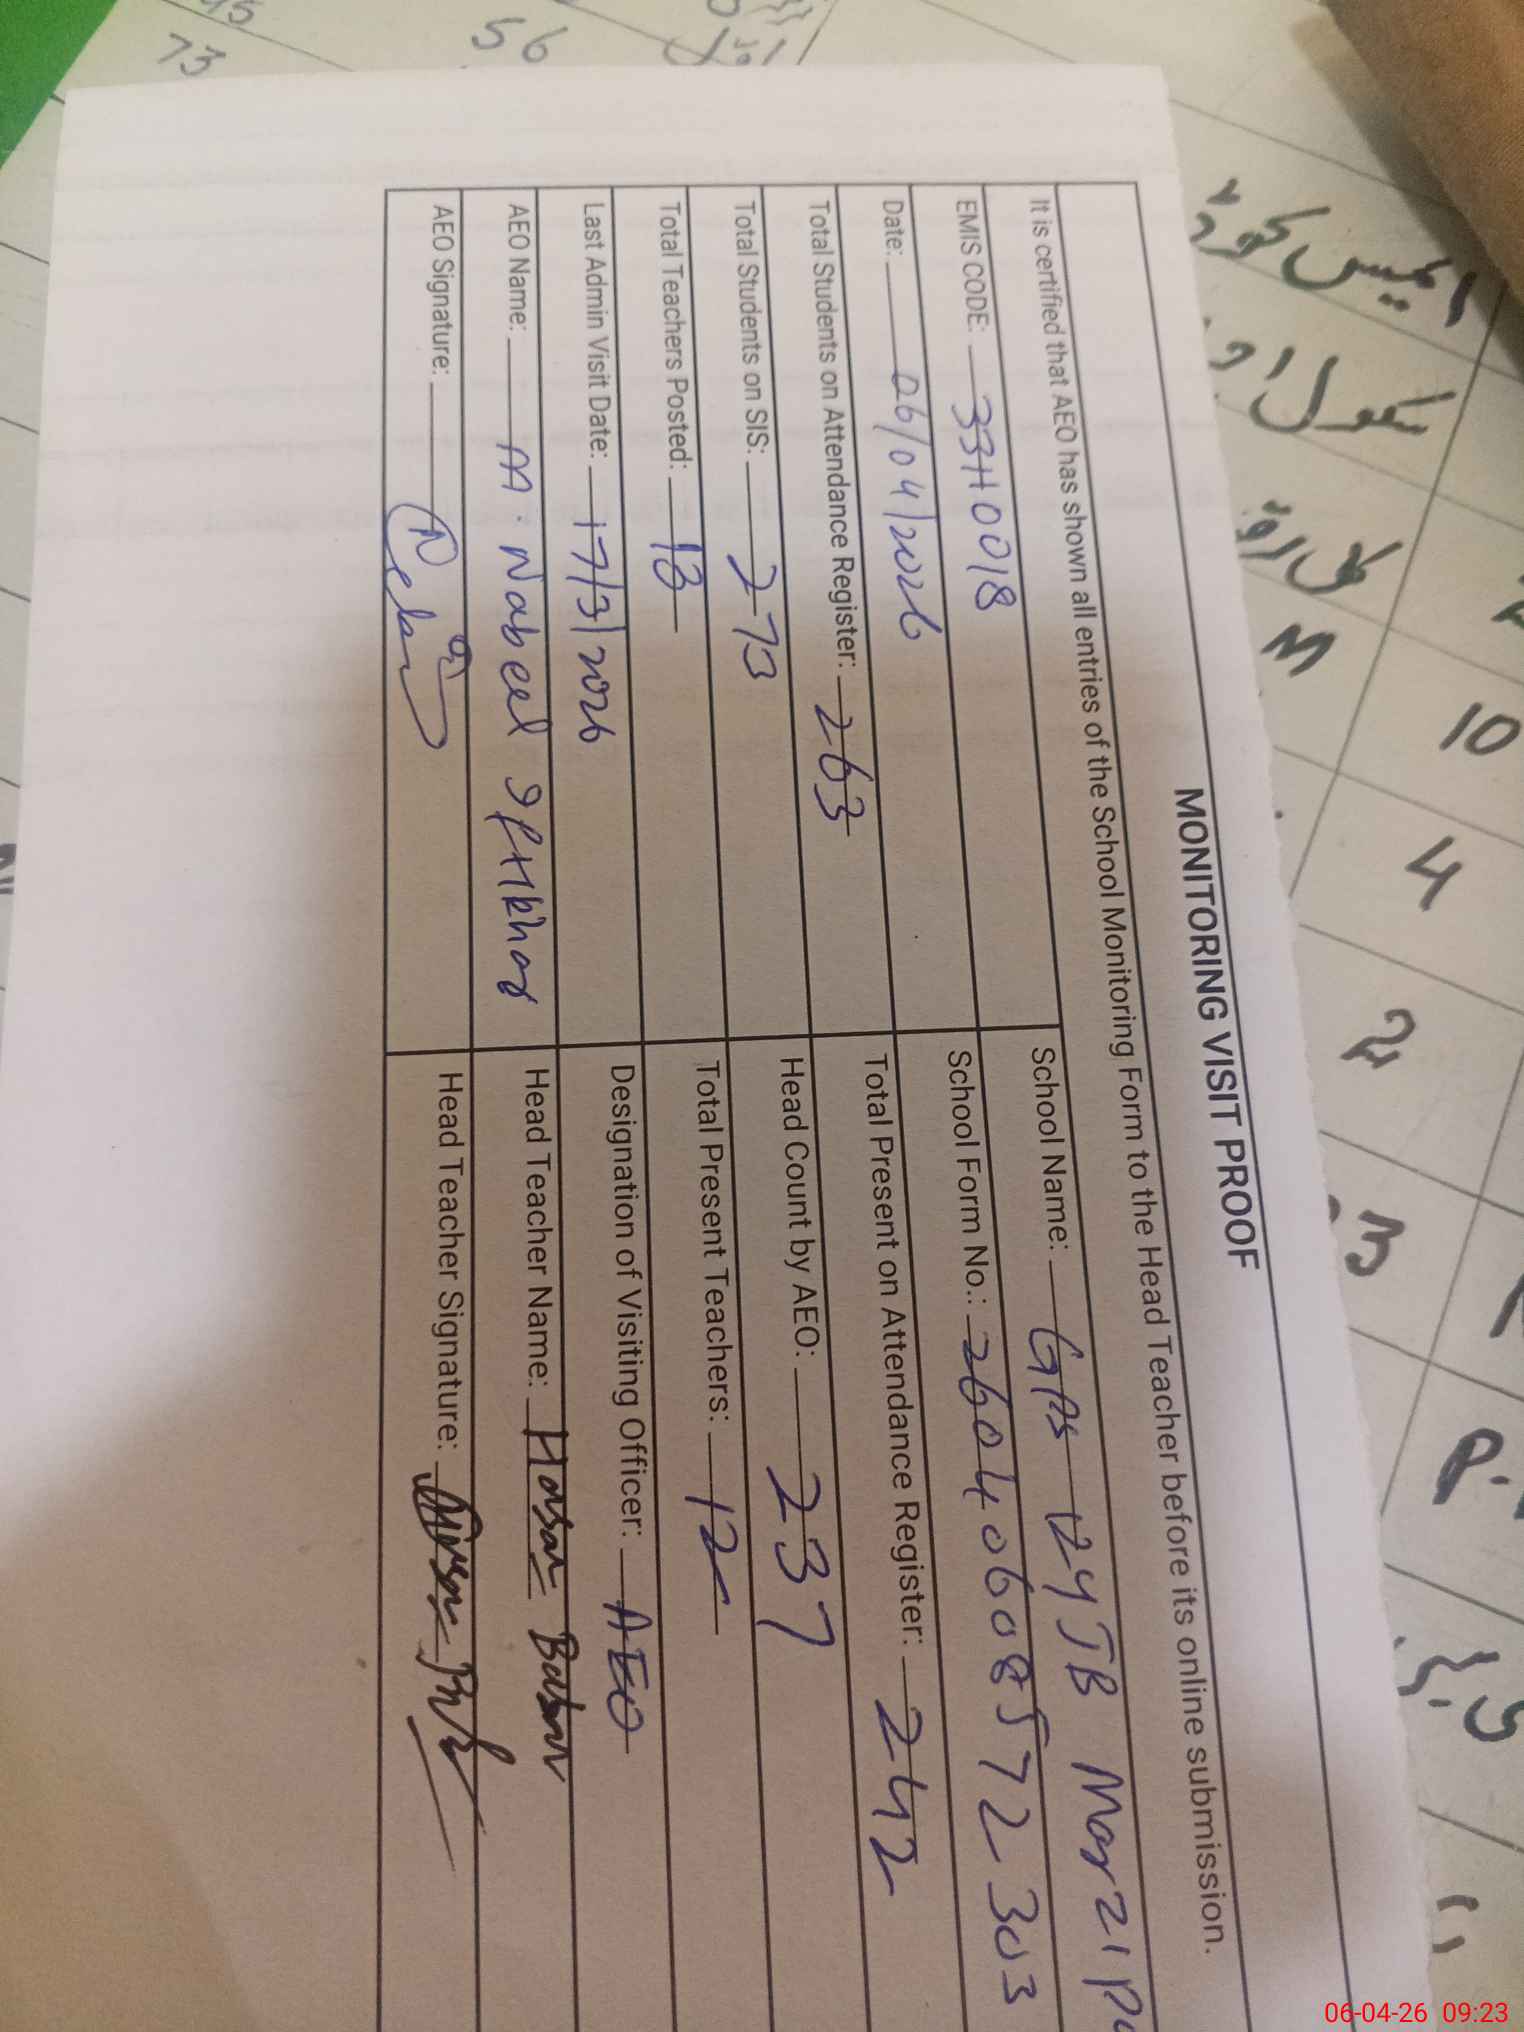 MONITORING VISIT PROOF
It is certified that AEO has shown all entries of the School Monitoring Form to the Head Teacher before its online submission.
EMIS CODE: 33110018
School Name: GPS 124 JB Marzi
Date: 06/04/2026
School Form No.: 26040608572303
Total Students on Attendance Register: 263
Total Present on Attendance Register: 242
Total Students on SIS: 273
Head Count by AEO: 237
Total Teachers Posted: 13
Total Present Teachers: 12
Last Admin Visit Date: 17/3/2026
Designation of Visiting Officer: AEO
AEO Name: M. Nabeel Iftikhar
Head Teacher Name: Hassan Babar
AEO Signature:
Head Teacher Signature:
73
56
10
4
2
3
M
06-04-26 09:23